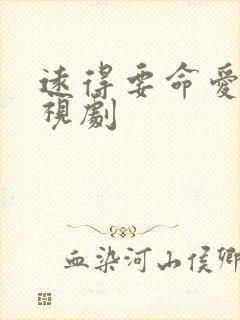 遠得要命愛
視劇
血染河山侯卿